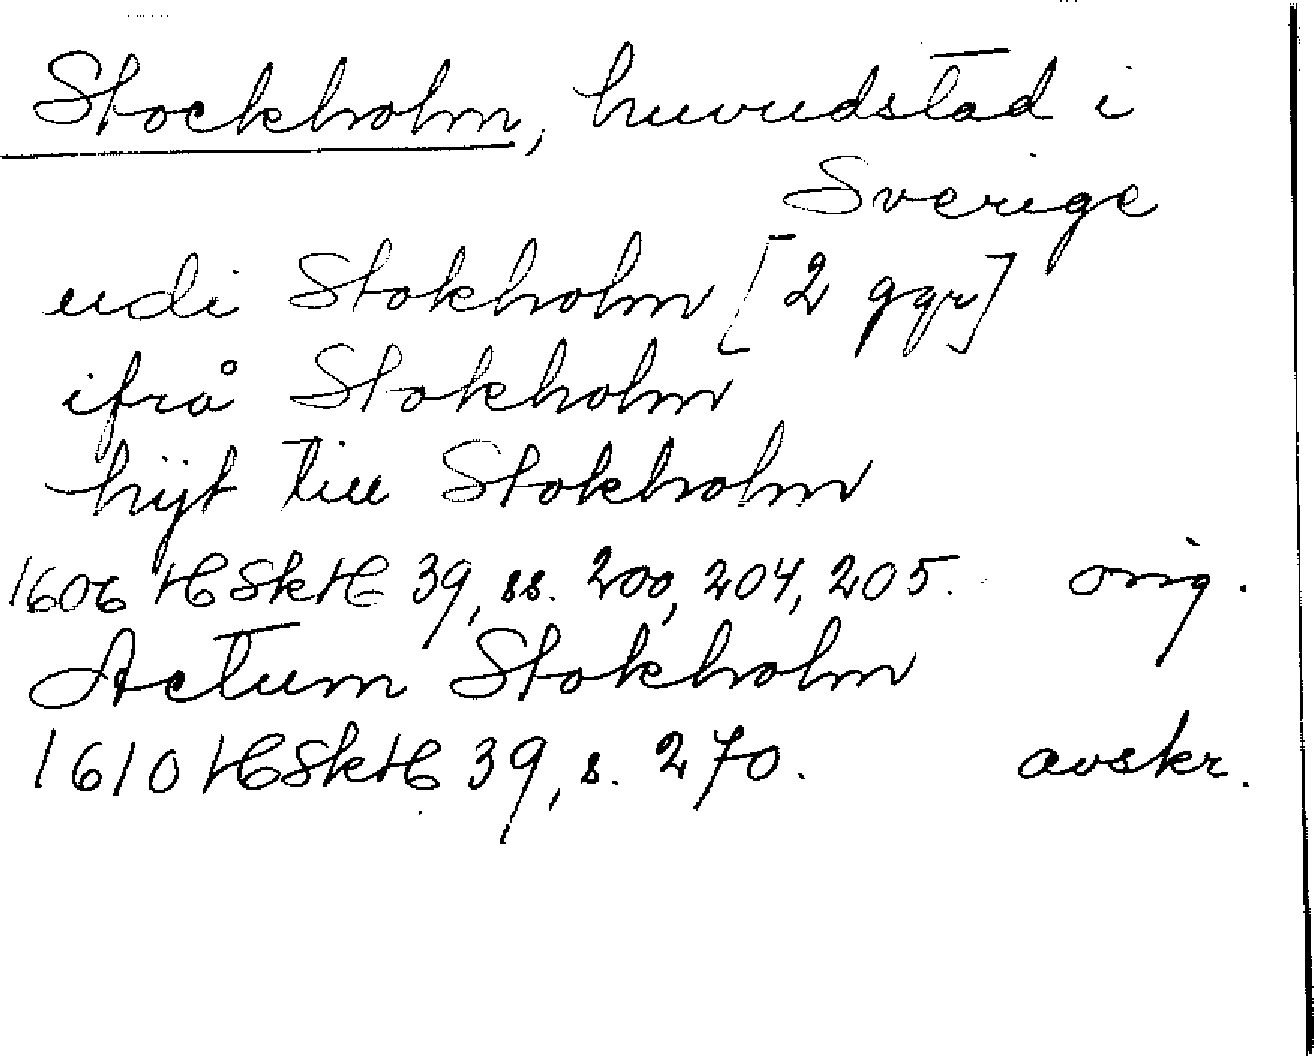 Stockholm, huvudstad i
Sverige
udi Stokholm [2 ggr]
ifrå Stokholm
hijt till Stokholm
1606 HSkH 39, ss. 200, 204, 205. orig.
Actum Stokholm
1610 HSkH 39, s. 270. avskr.